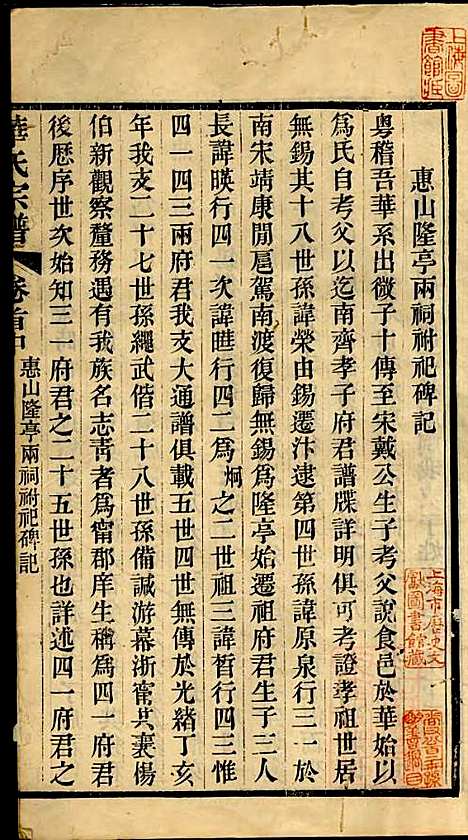 惠山隆亭兩祠祔祀碑記
粵稽吾華系出微子十傳至宋戴公生子考父說食邑於華始以
爲氏自考父以迄南齊孝子府君譜牒詳明可考證孝祖世居
無錫其十八世孫諱榮由錫遷汴逮第四世孫諱原泉行三一於
南宋靖康閒扈駕南渡復歸無錫爲隆亭始遷祖府君生子三人
長諱暎行四一次諱暀行四二爲炯之二世祖三諱皙行四三惟
四一四三兩府君我支大通譜俱載五世四世無傳於光緒丁亥
年我支二十七世孫繩武偕二十八世孫備誠游幕浙甯共襄傷
伯新觀察釐務遇有我族名志青者爲甯郡庠生稱爲四一府君之
後歷序世次始知三一府君之二十五世孫也詳述四一府君之
華氏宗譜 卷首中 惠山隆亭兩祠祔祀碑記
上海圖
書館藏
上海市歷史文
獻圖書館藏